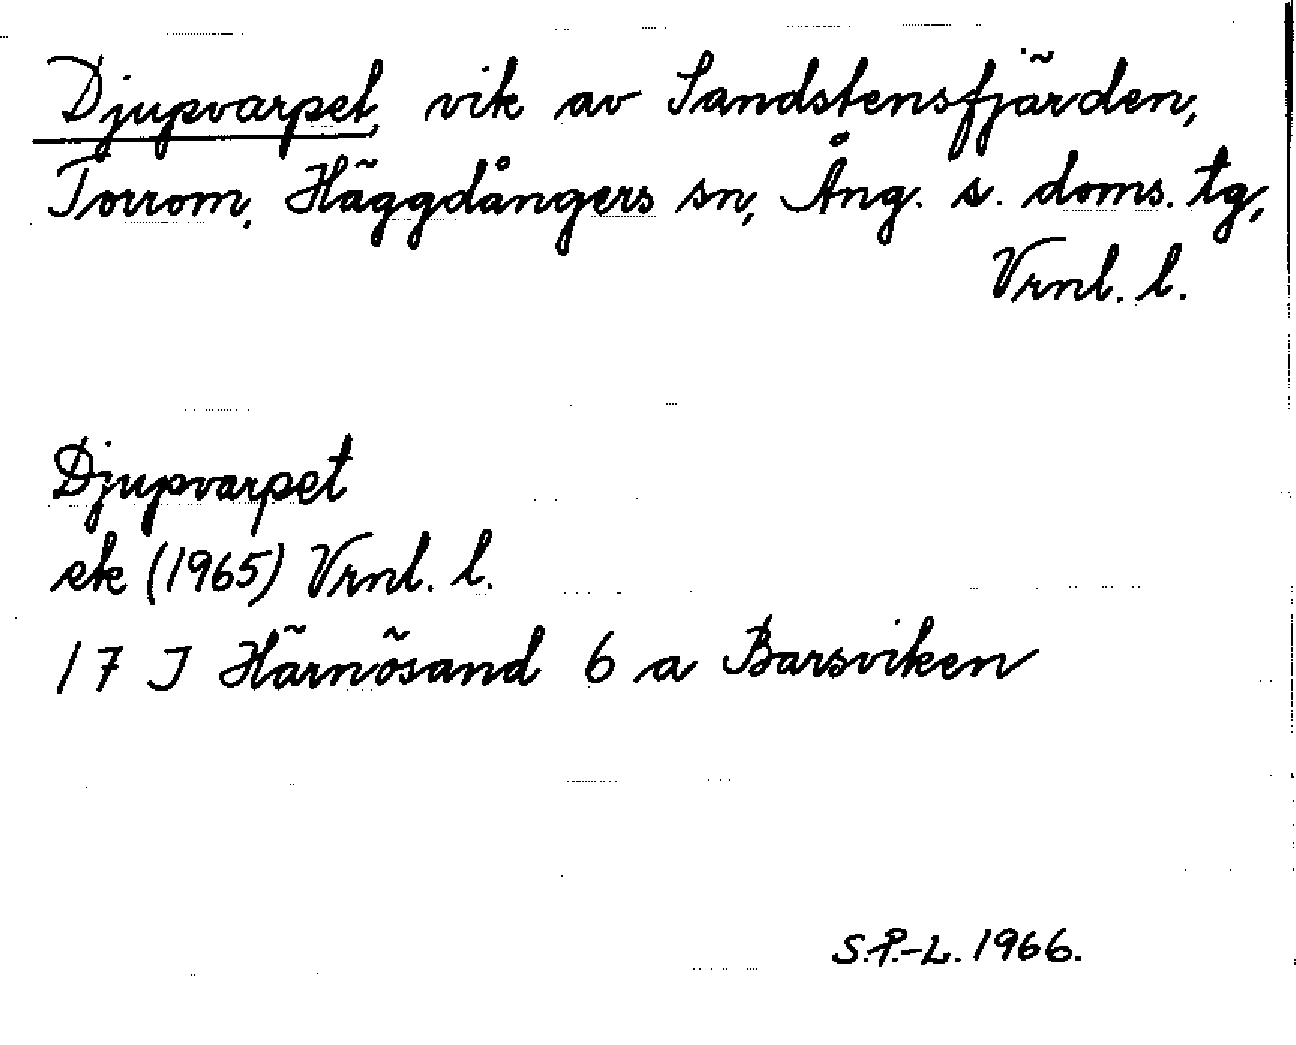 Djupvarpet, vik av Sandstensfjärden,
Torrom, Häggdångers sn, Ång. s. doms. tg,
Vrnl. l.
Djupvarpet
ek (1965) Vrnl. l.
17 I Härnösand 6 a Barsviken
S.P.-L. 1966.